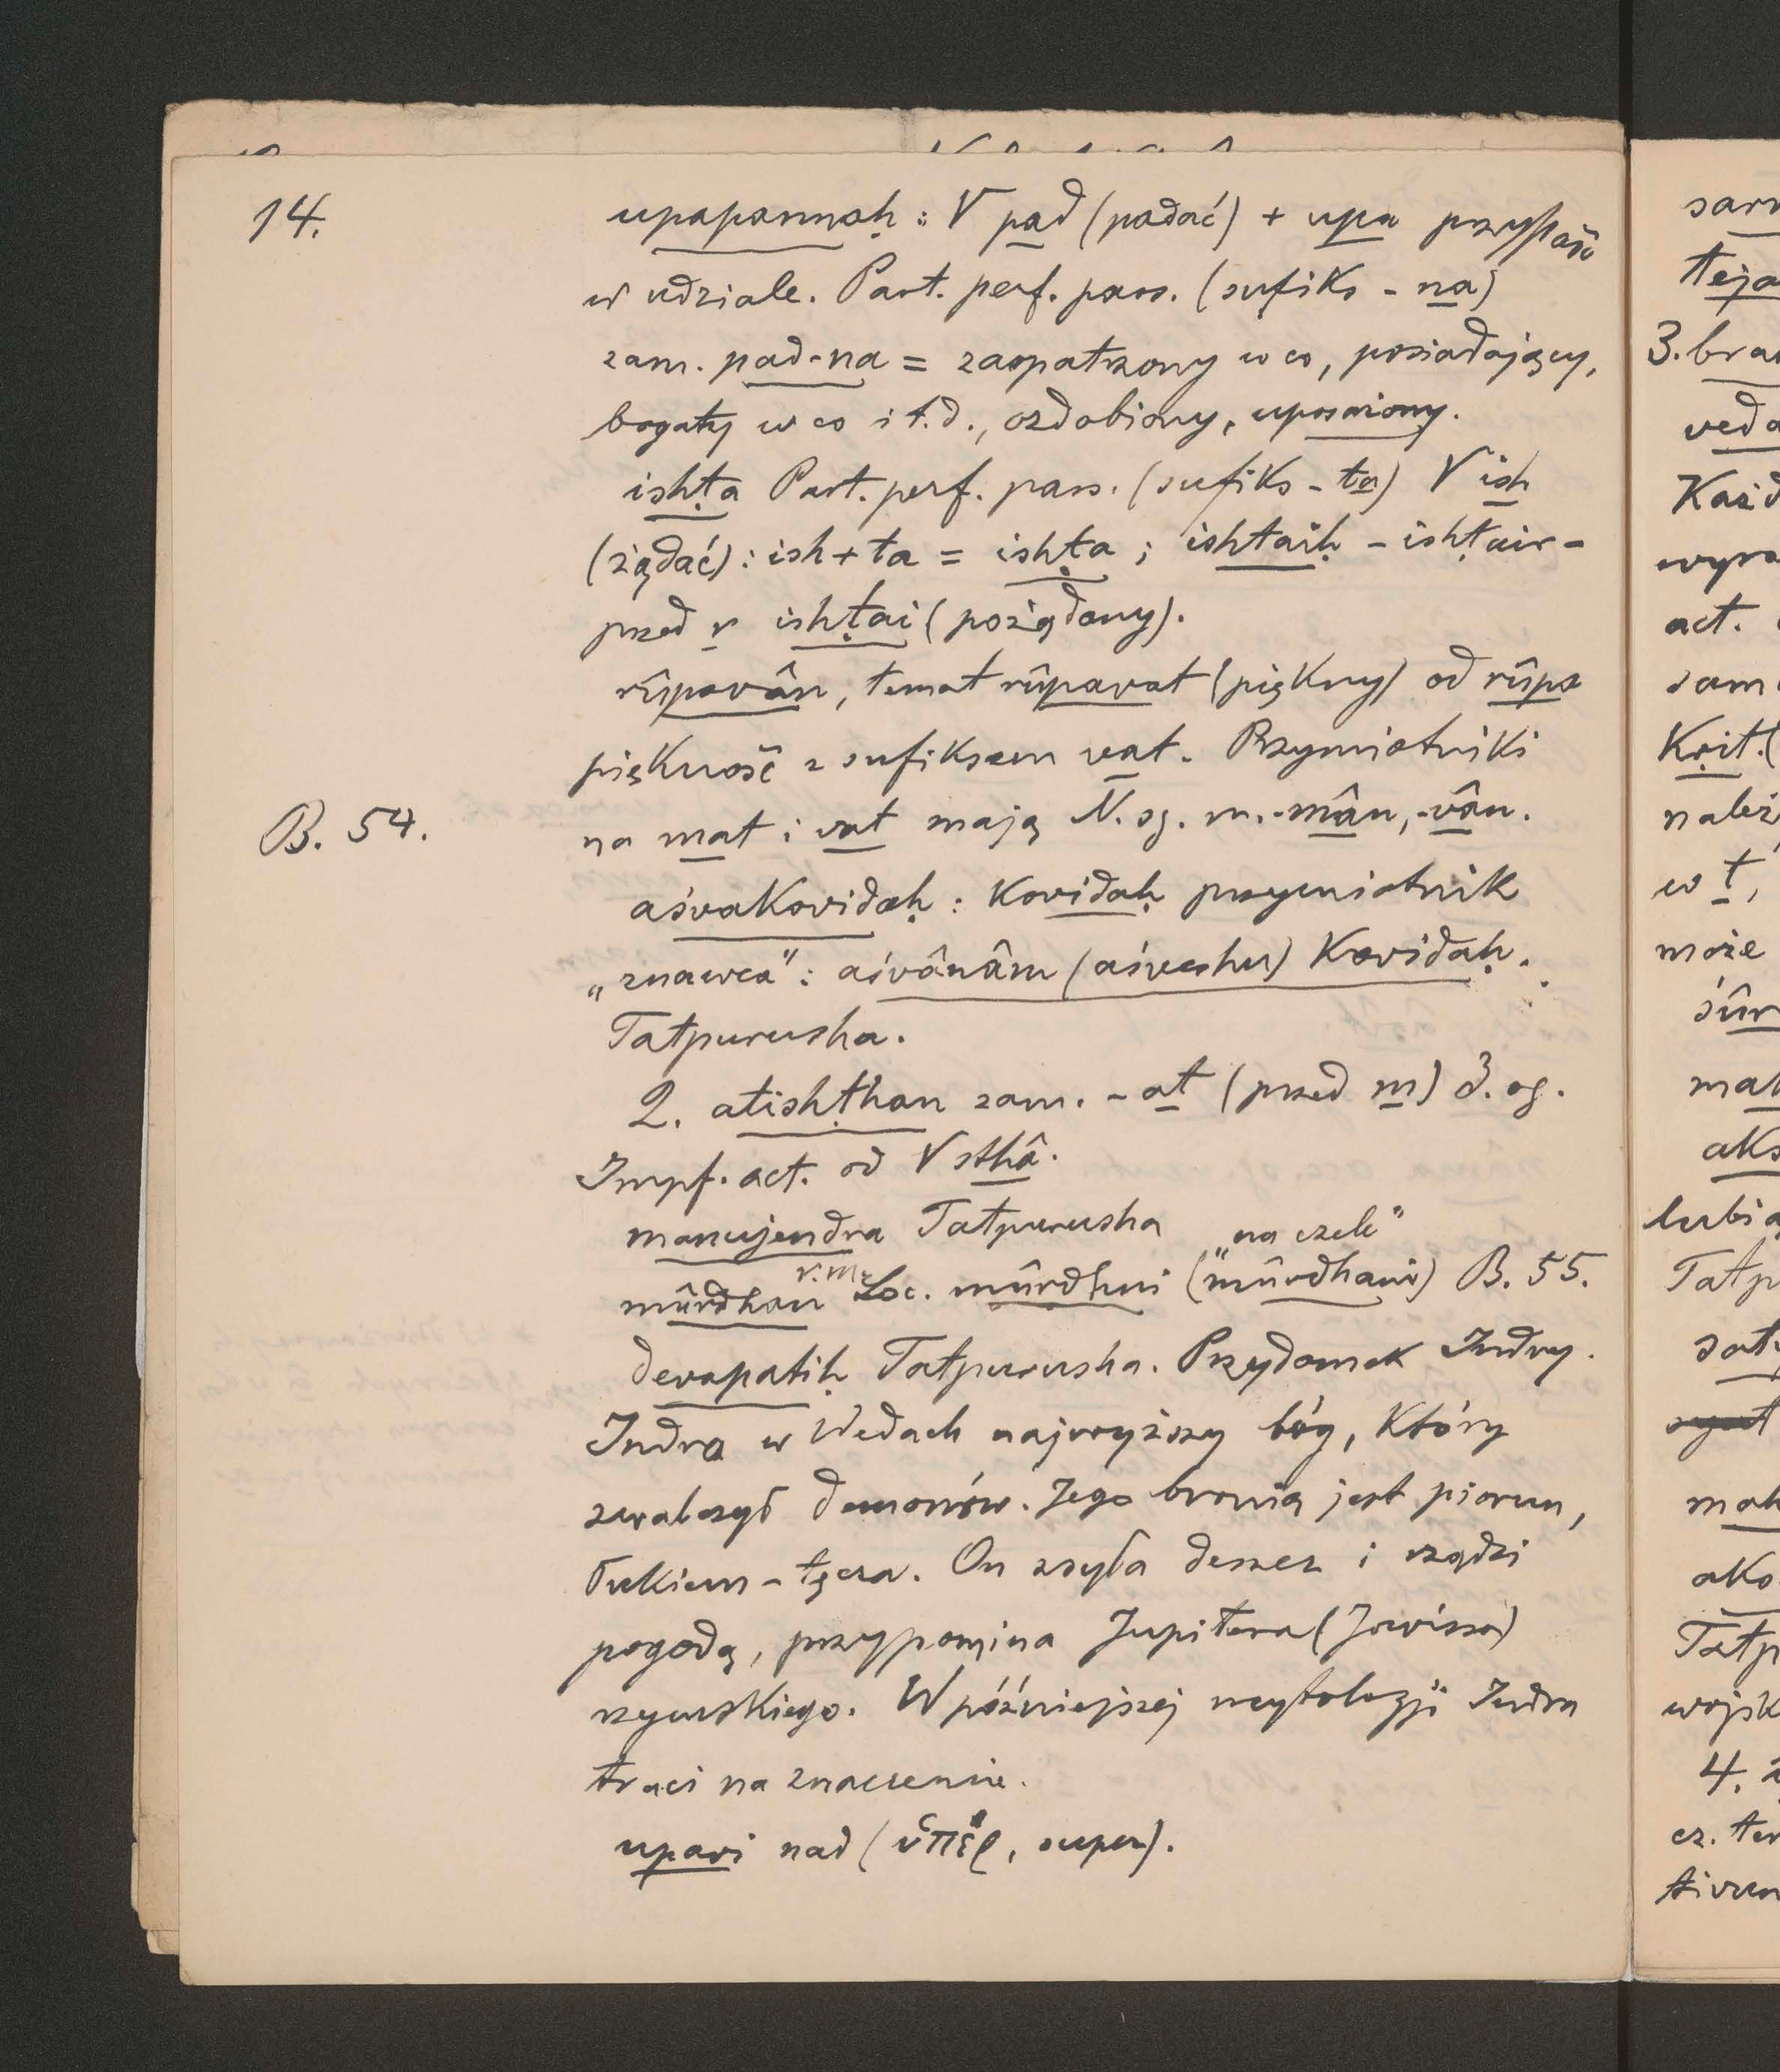 14.
upapannaḥ : √ pad (padać) + upa przypaść
w udziale. Part. perf. pass. (sufiks - na)
zam. pad-na = zaopatrzony w co, posiadający,
bogaty w co i t.d., ozdobiony, uposażony.
ishṭa Part. perf. pass. (sufiks - ta) √ ish
(żądać) : ish + ta = ishṭa ; ishtaiḥ - ishṭair -
przed r ishṭai (pożądany).
rûpavân, temat rûpavat (piękny) od rûpa
piękność z sufiksem vat. Przymiotniki
B. 54.
na mat i vat mają N. sg. m. -mân, -vân.
aśvakovidaḥ : kovidaḥ przymiotnik
„znawca” : aśvânâm (aśveshu) kovidaḥ.
Tatpurusha.
2. atishṭhan zam. - at (przed m) 3. sg.
Impf. act. od √ sthâ.
manujendra Tatpurusha „na czele”
mûrdhan r. m. Loc. mûrdhni (mûrdhani) B. 55.
devapatiḥ Tatpurusha. Przydomek Indry.
Indra w Wedach najwyższy bóg, który
zwalczył demonów. Jego bronią jest piorun,
łukiem - tęcza. On zsyła deszcz i rządzi
pogodą, przypomina Jupitera (Jowisza)
rzymskiego. W późniejszej mytologji Indra
traci na znaczenie.
upari nad (ὑπέρ, super).
3. bra
act.
w t,
4.